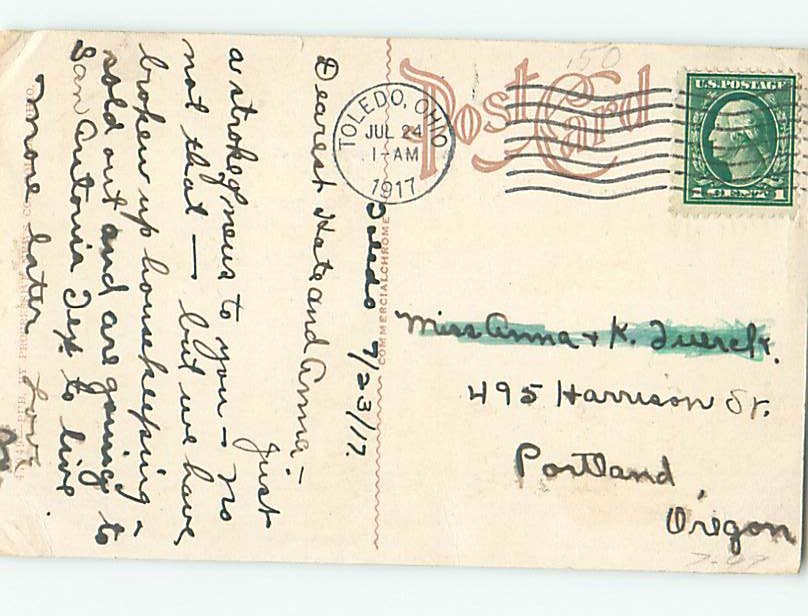 150
Post Card
U.S. POSTAGE
TOLEDO, OHIO
JUL 24
1-AM
1917
Toledo 7/23/17.
Dearest Kate and Anna:-
Just
a stroke of news to you - no
not that - but we have
broken up housekeeping -
sold out and are going to
San Antonia Tex to live.
more later Love
COMMERCIALCHROME
Miss Anna + K. Tuerck.
495 Harrison St.
Portland,
Oregon